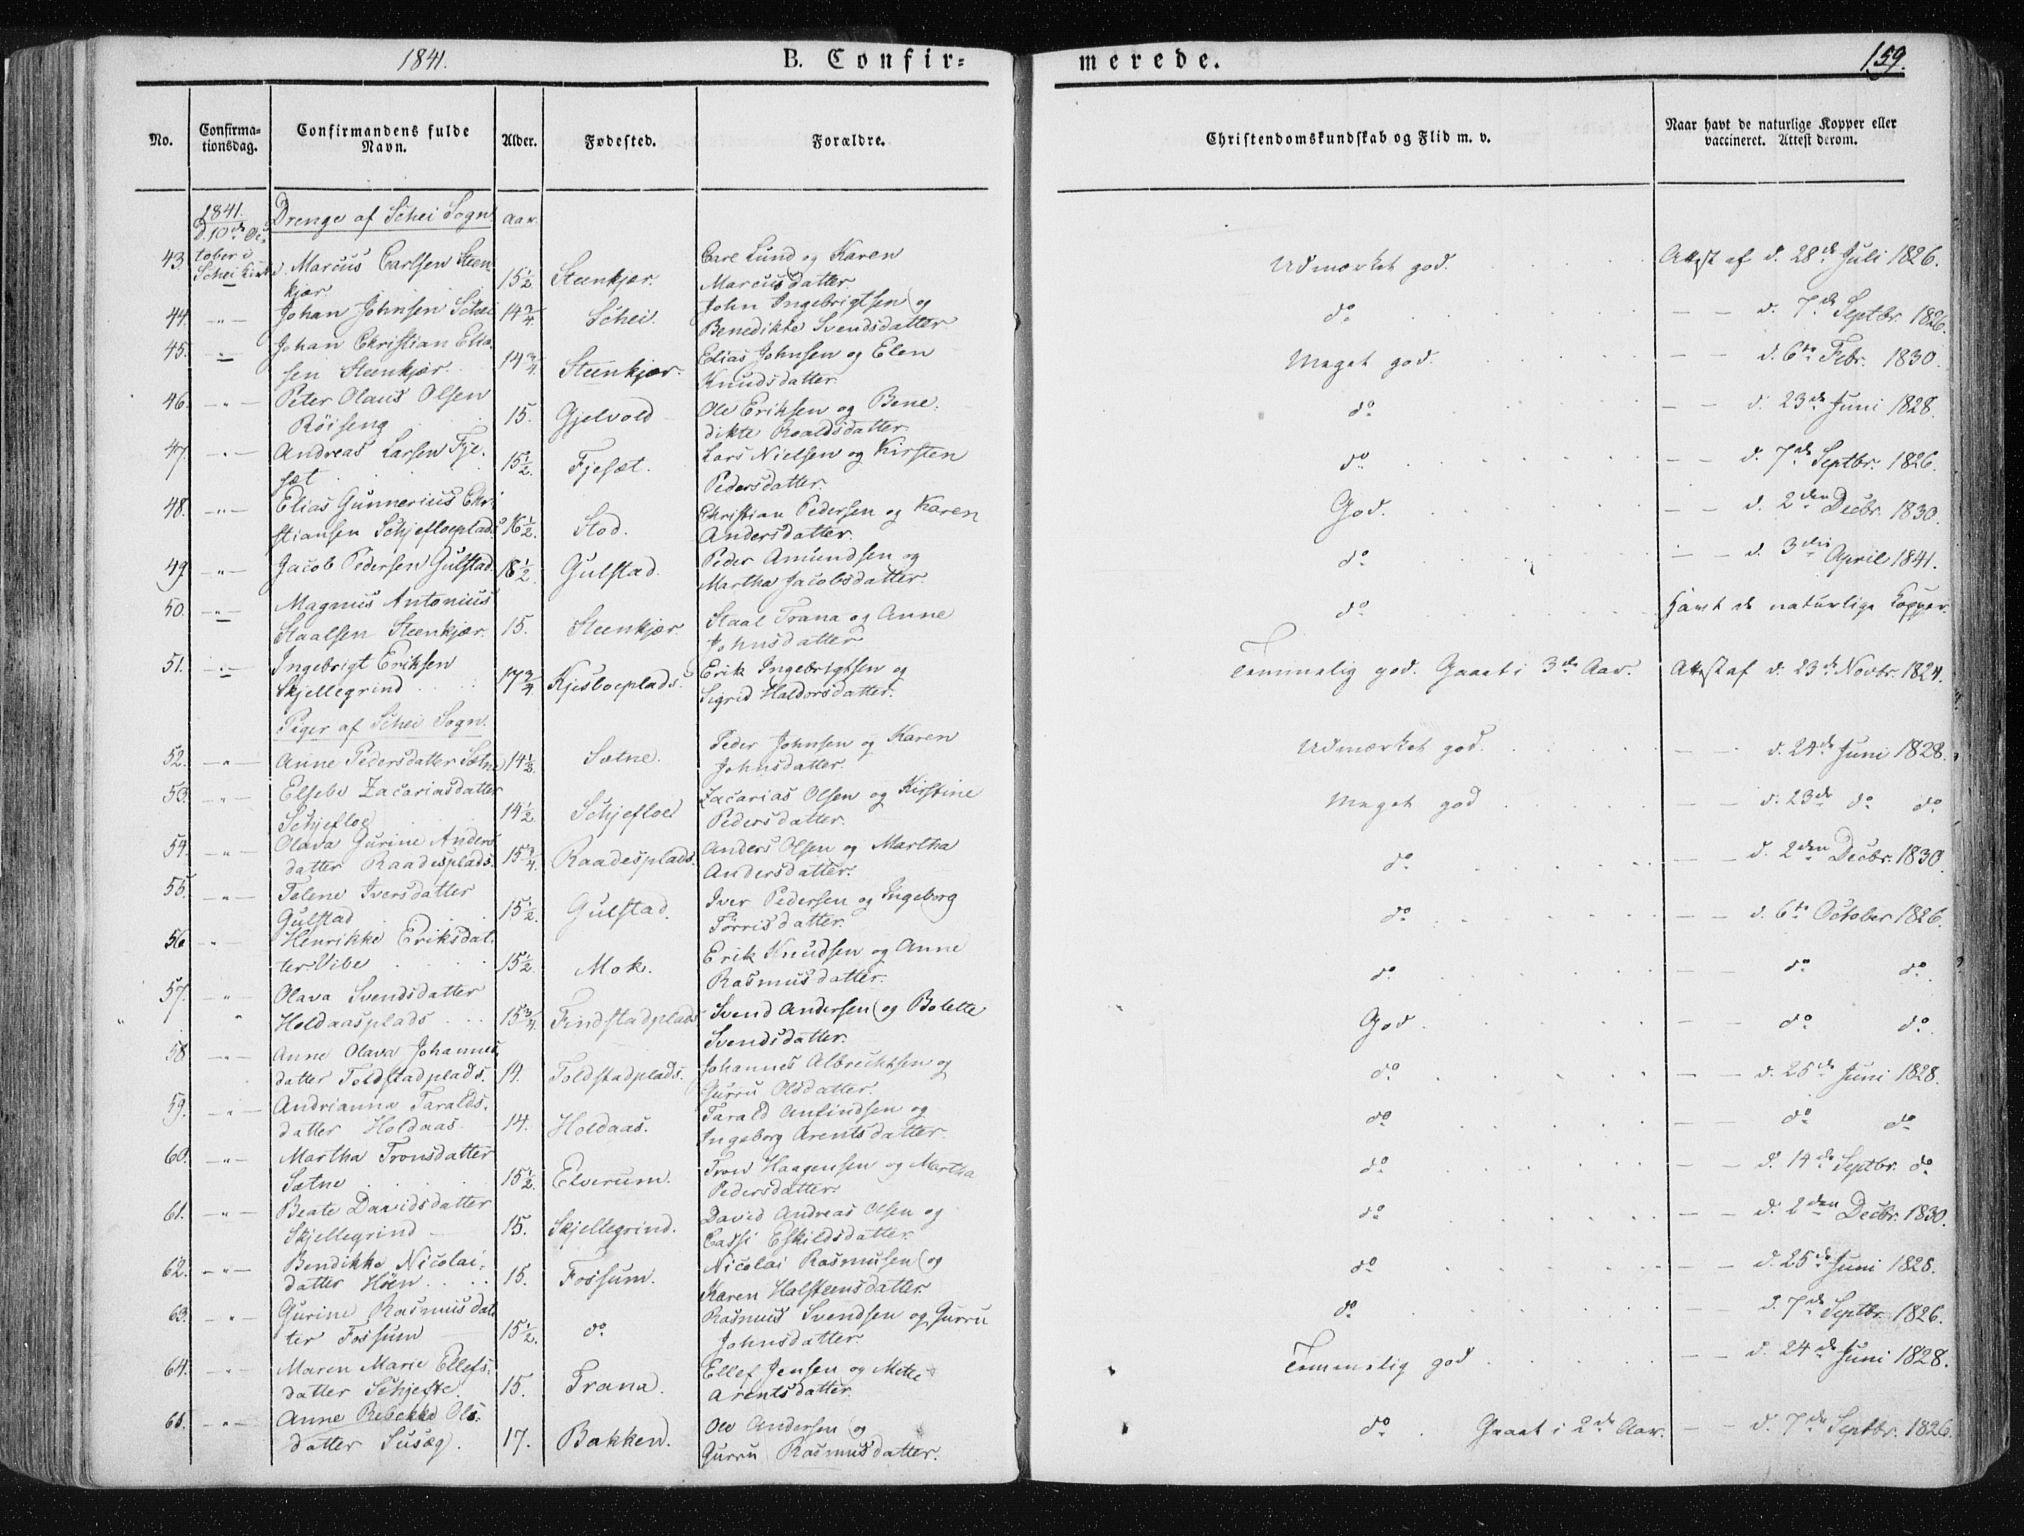 1841.
B. Confir=
merede.
159.
No.
Confirma-
tionsdag.
Confirmandens fulde
Navn.
Alder.
Fødested.
Forældre.
Christendomskundskab og Flid m. v.
Naar havt de naturlige Kopper eller
vaccineret. Attest derom.
1841.
D. 10de Oc-
tober i
Schei Kirke
Drenge af Schei Sogn
Aar.
43. Marcus Carlsen Steen
kjær 15 1/2 Steenkjær. Carl Lund og Karen
Marcusdatter. Udmærket god. Attest af d. 28de Juli 1826.
44. -„- Johan Johnsen Schei 14 3/4 Schei. John Ingebrigtsen og
Benedikte Svendsdatter do — — d. 7de Septbr. 1826.
45. -„- Johan Christian Elia
sen Steenkjær. 14 3/4 Steenkjær. Elias Johnsen og Elen
Knudsdatter. Meget god. — — d. 6te Febr. 1830.
46. -„- Peter Olaus Olsen
Röiseng 15. Gjelvold Ole Eriksen og Bene-
dikte Roaldsdatter. do — — d. 23de Juni 1828.
47. -„- Andreas Larsen Fje-
sæt 15 1/2. Fjesæt. Lars Nielsen og Kirsten
Pedersdatter. do d. 7de Septbr. 1826.
48. -„- Elias Gunnerius Chri
stiansen Schjefloeplads 16 1/2. Stod. Christian Pedersen og Karen
Andersdatter. God. — — d. 2den Decbr. 1830.
49. -„- Jacob Pedersen Gulstad. 18 1/2 Gulstad. Peder Amundsen og
Martha Jacobsdatter do — — d. 3die April 1841.
50. -„- Magnus Antonius
Staalsen Steenkjær. 15. Steenkjær. Staal Trana og Anne
Johnsdatter do Havt de naturlige Kopper.
51. -„- Ingebrigt Eriksen
Skjellegrind 17 3/4 Kjesloeplads. Erik Ingebrigtsen og
Sigrid Haldorsdatter. Temmelig god. Gaaet i 3de Aar. Attest af d. 23de Novbr. 1824.
Piger af Schei Sogn.
52. -„- Anne Pedersdatter Sætne 14 1/2. Sætne. Peder Johnsen og Karen
Johnsdatter. Udmærket god. — — d. 24de Juni 1828.
53. -„- Elsebe Zacariasdatter
Schjefloe 14 1/2. Schjefloe Zacarias Olsen og Kirstine
Pedersdatter. Meget god — — d. 23de do do
54. -„- Olava Gurine Anders
datter Raadesplads. 15 3/4. Raadesplads. Anders Olsen og Martha
Andersdatter. do — — d. 2den Decbr. 1830.
55. -„- Tolene Iversdatter
Gulstad 15 1/2. Gulstad. Iver Pedersen og Ingeborg
Torrisdatter. do — — d. 6te October 1826.
56 -„- Henrikke Eriksdat-
ter Vibe 15 1/2. Mok. Erik Knudsen og Anne
Rasmusdatter. do do do.
57. -„- Olava Svendsdatter
Holdaasplads 15 3/4 Findstadplads Svend Andersen og Bolette
Svendsdatter. God — — do do.
58 -„- Anne Olava Johannes
datter Toldstadplads. 14. Toldstadplads. Johannes Albrechtsen og
Gurru Olsdatter. do — — d. 25de Juni 1828.
59. -„- Andrianna Taralds-
datter Holdaas 14. Holdaas. Tarald Anfindsen og
Ingeborg Arentsdatter. do do do
60. -„- Martha Tronsdatter
Sætne 15 1/2. Elverum. Tron Haagensen og Martha
Pedersdatter. do — — d. 14de Septbr. do
61. -„- Beate Davidsdatter
Skjellegrind 15. Skjellegrind. David Andreas Olsen og
Cassi Eskildsdatter do — — d. 2den Decbr. 1830.
62. -„- Bendikke Nicolai-
datter Höen 15. Fossum. Nicolai Rasmusen og
Karen Halsteensdatter do d. 25de Juni 1828.
63. -„- Gurine Rasmusdat
ter Fossum 15 1/2. do Rasmus Svendsen og Gurru
Johnsdatter. do — — d. 7de Septbr. 1826.
64. -„- Maren Marie Ellefs-
datter Schjefte. 15. Trana. Ellef Jensen og Mette
Arentsdatter. Temmelig god — — d. 24de Juni 1828.
65. -„- Anne Rebekka Ols-
datter Susæg. 17. Bakken. Ole Andersen og
Gurru Rasmusdatter. do. Gaaet i 2de Aar. — — d. 7de Septbr. 1826.